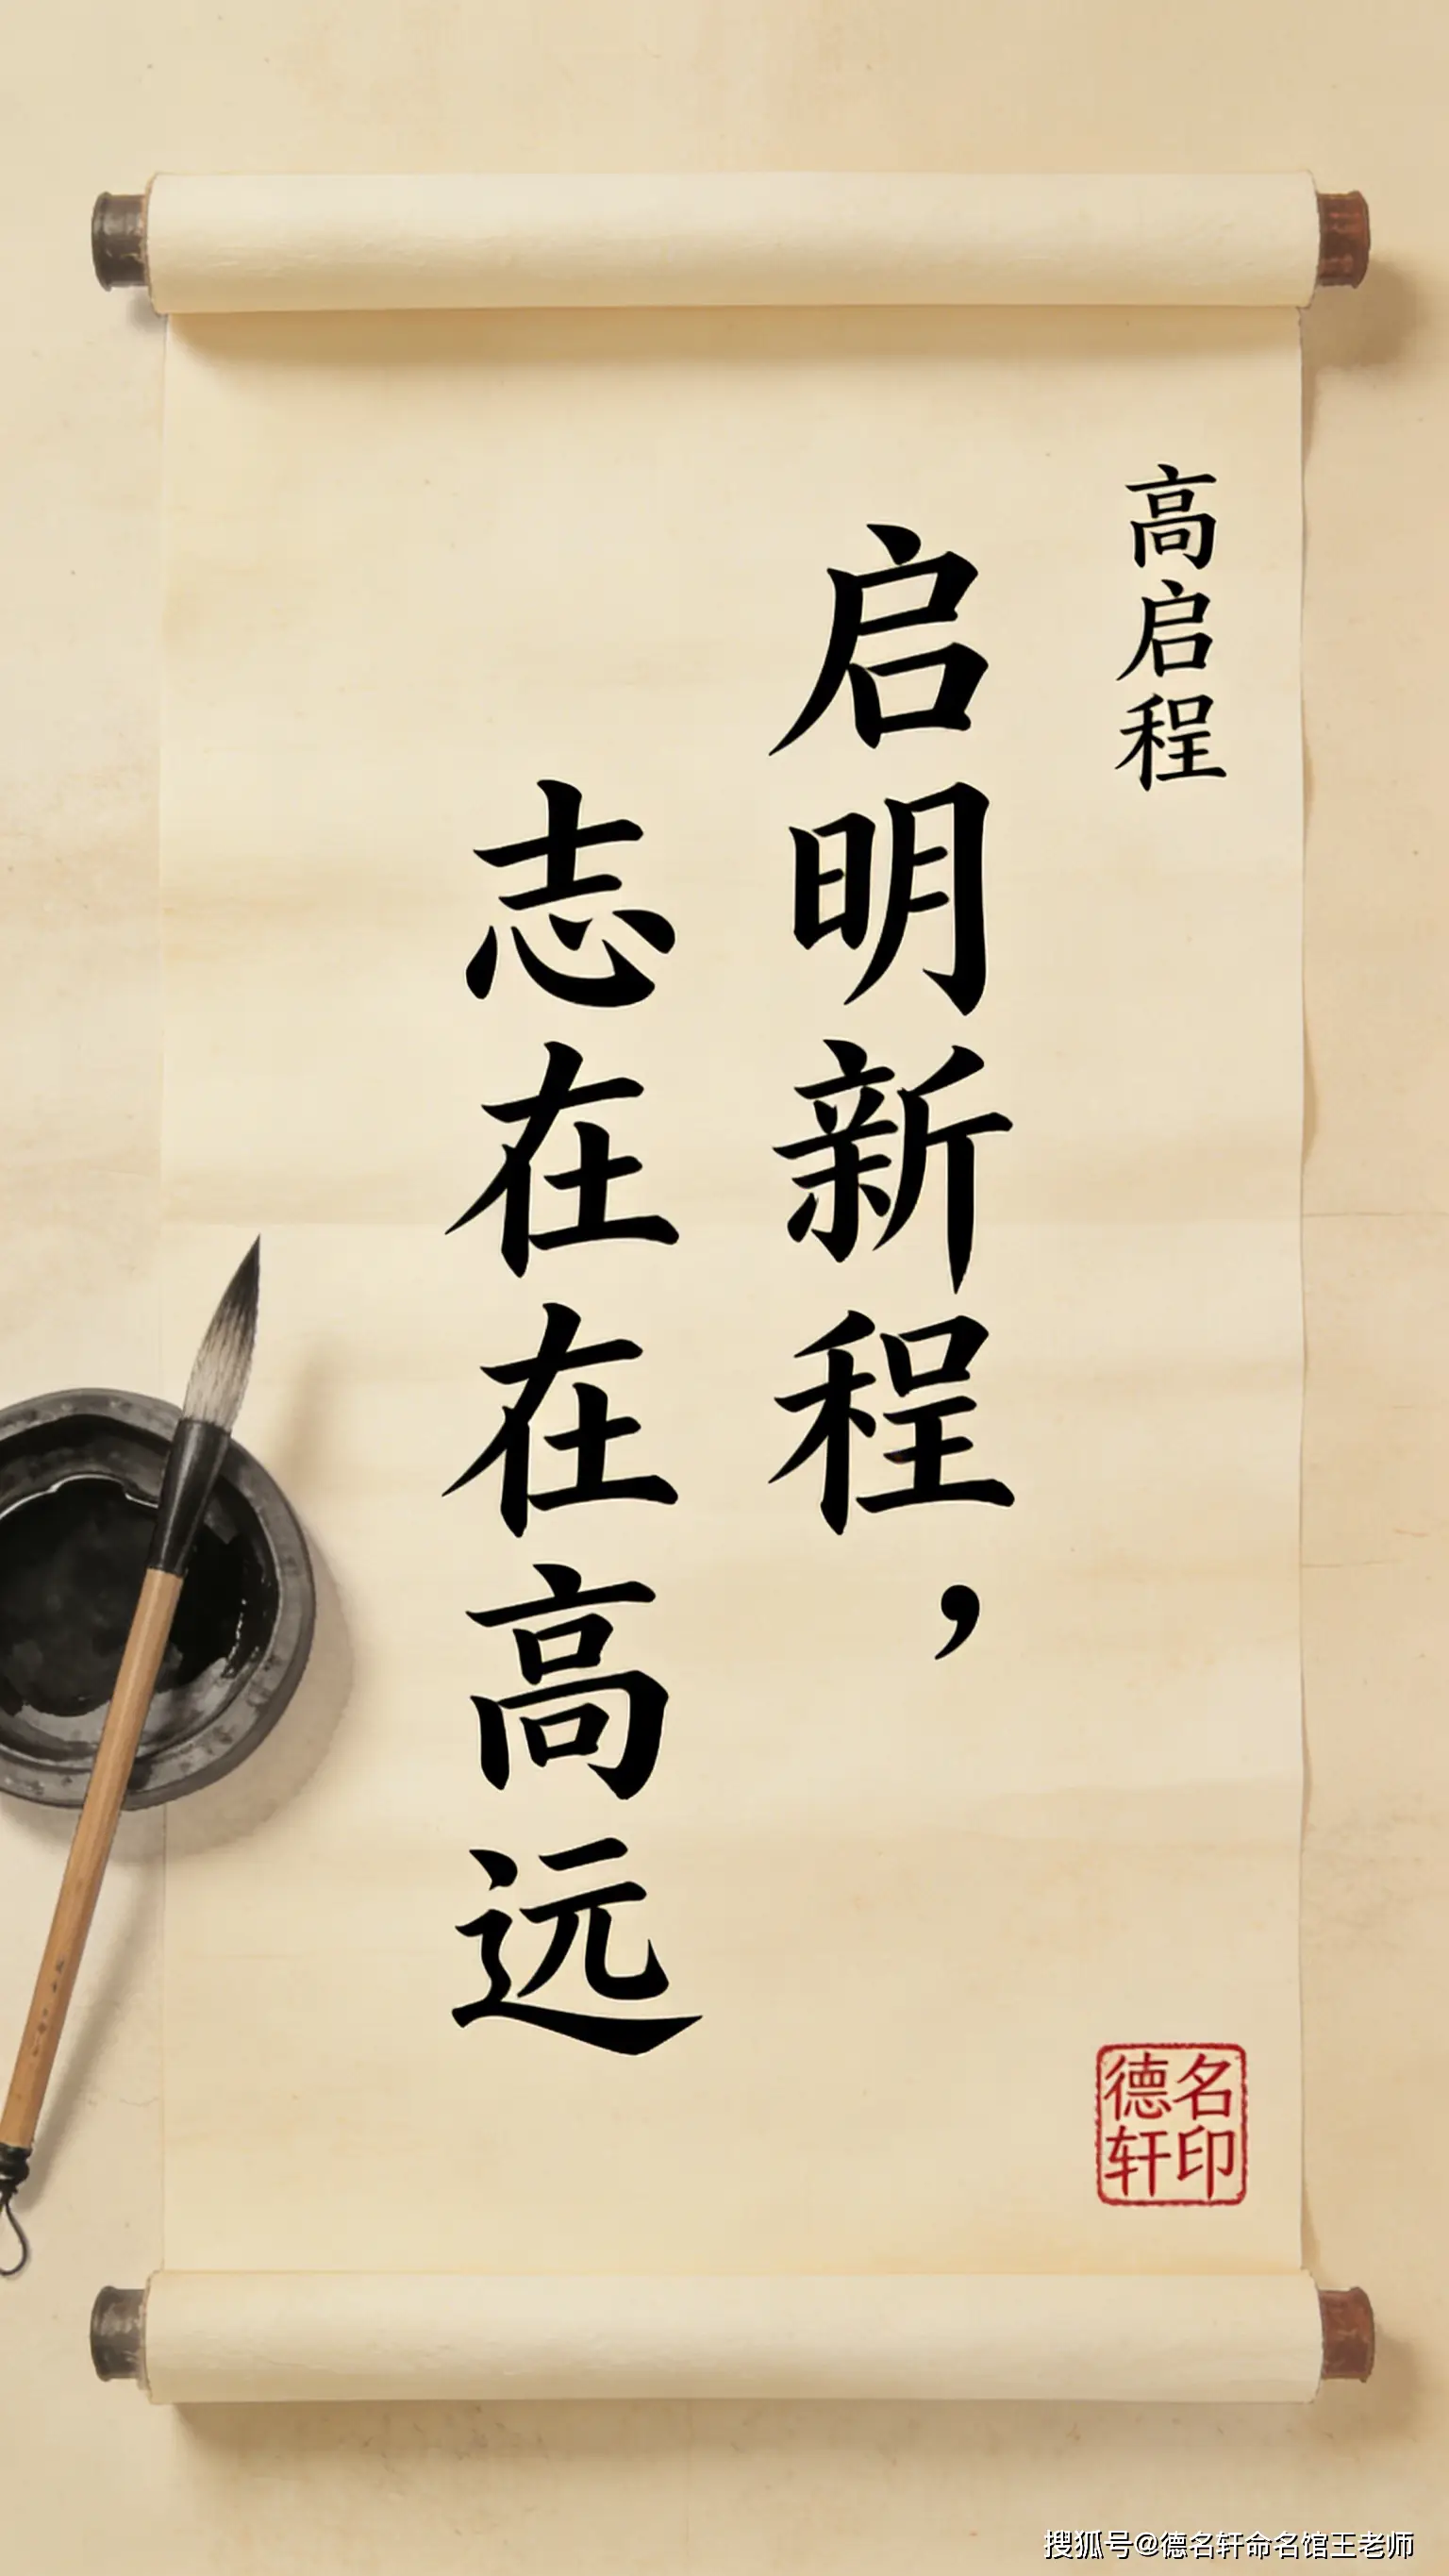 高启程
启明新程，
志在在高远
德名
轩印
搜狐号@德名轩命名馆王老师